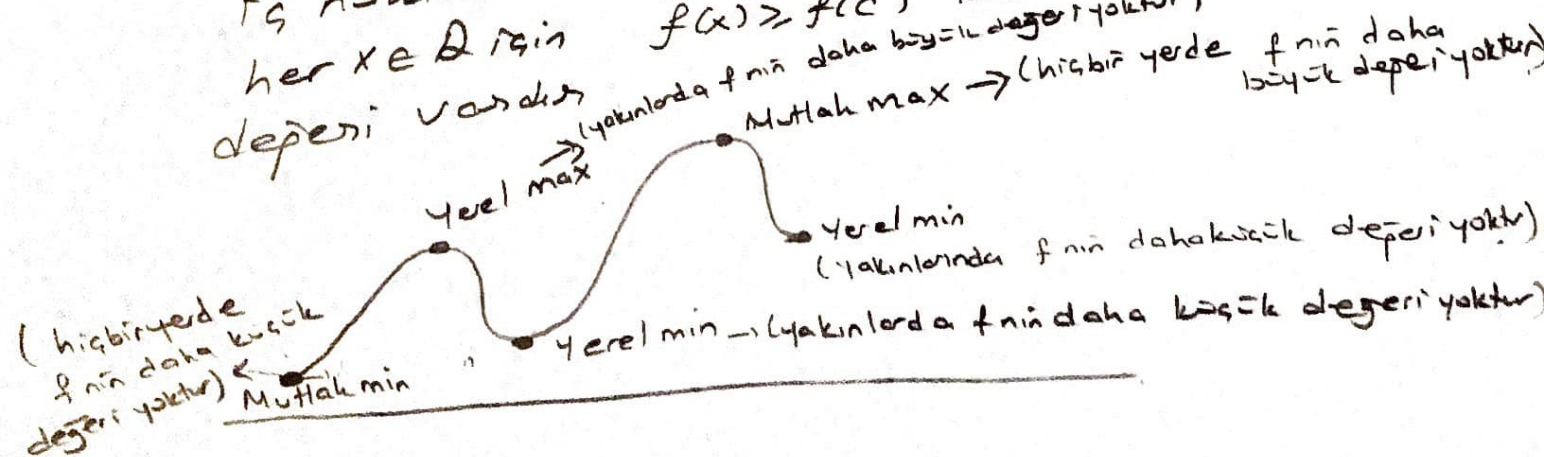 her x ∈ D için f(x) ≥ f(c)
değeri vardır
Yerel max → (yakınlarda f nin daha büyük değeri yoktur)
Mutlak max → (hiçbir yerde f nin daha
büyük değeri yoktur)
Yerel min
(yakınlarında f nin daha küçük değeri yoktur)
Yerel min → (yakınlarda f nin daha küçük değeri yoktur)
(hiçbiryerde
f nin daha küçük
değeri yoktur)
Mutlak min